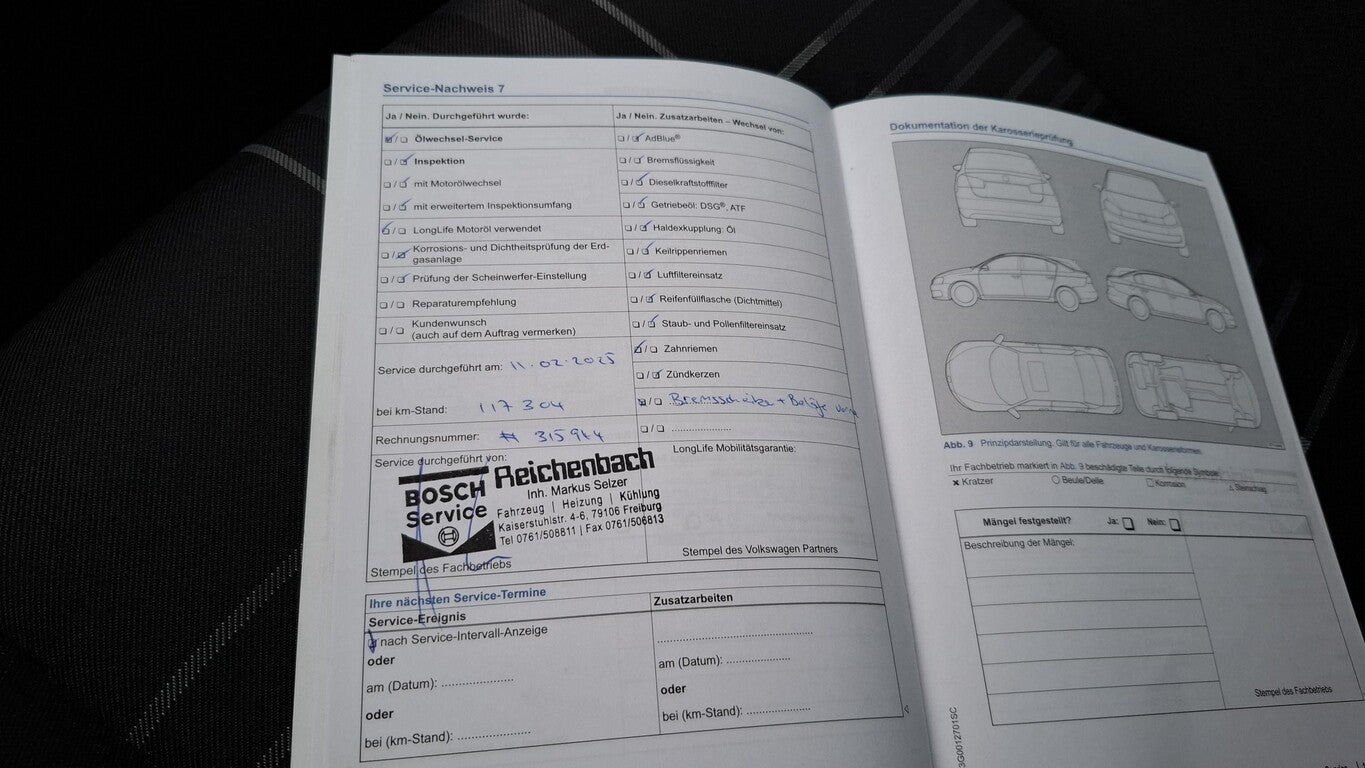 Service-Nachweis 7
Ja / Nein. Durchgeführt wurde:
Ölwechsel-Service
Inspektion
mit Motorölwechsel
mit erweitertem Inspektionsumfang
LongLife Motoröl verwendet
Korrosions- und Dichtheitsprüfung der Erd-
gasanlage
Prüfung der Scheinwerfer-Einstellung
Reparaturempfehlung
Kundenwunsch
(auch auf dem Auftrag vermerken)
Service durchgeführt am: 11.02.2025
bei km-Stand: 117 304
Rechnungsnummer:
Service durchgeführt von:
BOSCH
Service
Reichenbach
Inh. Markus Selzer
Fahrzeug | Heizung | Kühlung
Kaiserstuhlstr. 4-6, 79106 Freiburg
Tel 0761/508811 | Fax 0761/506813
Stempel des Fachbetriebs
Ja / Nein. Zusatzarbeiten – Wechsel von:
AdBlue®
Bremsflüssigkeit
Dieselkraftstofffilter
Getriebeöl: DSG®, ATF
Haldexkupplung: Öl
Keilrippenriemen
Luftfiltereinsatz
Reifenfüllflasche (Dichtmittel)
Staub- und Pollenfiltereinsatz
Zahnriemen
Zündkerzen
+ Beläge
LongLife Mobilitätsgarantie:
Stempel des Volkswagen Partners
Ihre nächsten Service-Termine
Service-Ereignis
nach Service-Intervall-Anzeige
oder
am (Datum): ....................
oder
bei (km-Stand): ....................
Zusatzarbeiten
am (Datum): ....................
oder
bei (km-Stand): ....................
Dokumentation der Karosserieprüfung
Abb. 9 Prinzipdarstellung. Gilt für alle Fahrzeuge und Karosserieformen.
Ihr Fachbetrieb markiert in Abb. 9 beschädigte Teile durch folgende Symbole:
× Kratzer
Beule/Delle
Korrosion
Steinschlag
Mängel festgestellt? Ja: Nein:
Beschreibung der Mängel:
Stempel des Fachbetriebs
3G0012701SC